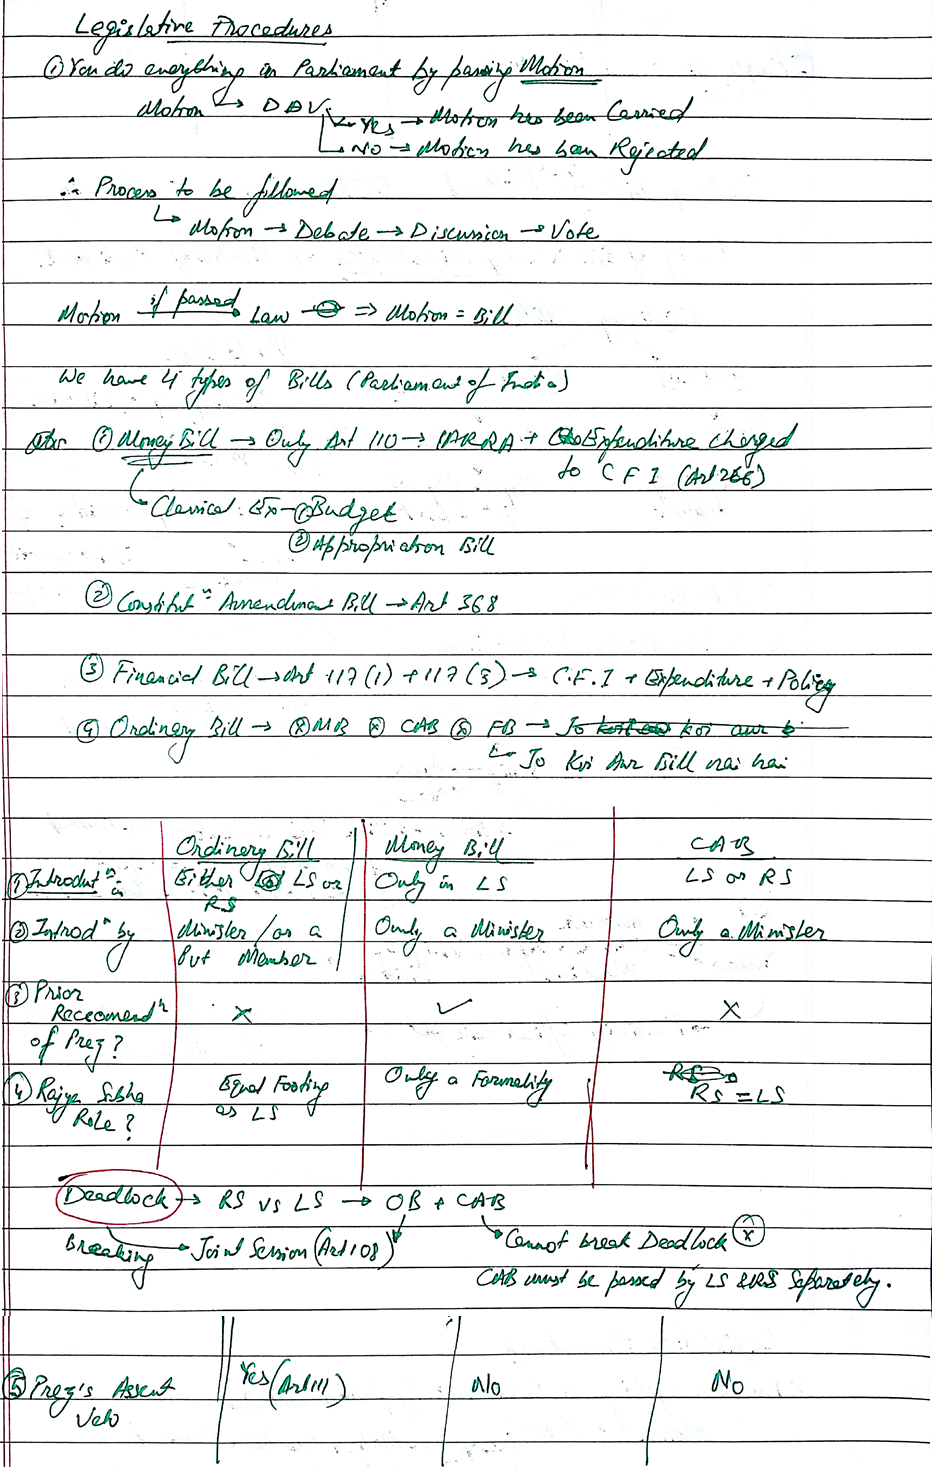 Legislative Procedures
① You do everything in Parliament by passing Motion
Motion → DDV → Yes → Motion has been Carried
→ No → Motion has been Rejected
∴ Process to be followed
→ Motion → Debate → Discussion → Vote
Motion if passed → Law ⇒ Motion = Bill
We have 4 types of Bills (Parliament of India)
① Money Bill → Only Art 110 → + Expenditure charged
to C F I (Art 266)
→ Classical Ex - ① Budget
② Appropriation Bill
② Constitutⁿ Amendment Bill → Art 368
③ Financial Bill → Art 117 (1) + 117 (3) → C.F.I + Expenditure + Policy
④ Ordinary Bill → ⓧ MB ⓧ CAB ⓧ FB → Jo koi aur
→ Jo Koi Aur Bill nai hai
Ordinery Bill Money Bill CAB
① Introductⁿ in Either LS or RS Only in LS LS or RS
② Introdⁿ by Minister / or a Pvt Member Only a Minister Only a Minister
③ Prior Reccomendⁿ of Prez? × ✓ ×
④ Rajya Sabha Role? Equal Footing as LS Only a Formality RS = LS
Deadlock → RS vs LS → OB + CAB
Breaking → Joint Session (Art 108) → Cannot break Deadlock ⓧ
CAB must be passed by LS & RS Separately.
⑤ Prez's Assent Veto Yes (Art 111) No No